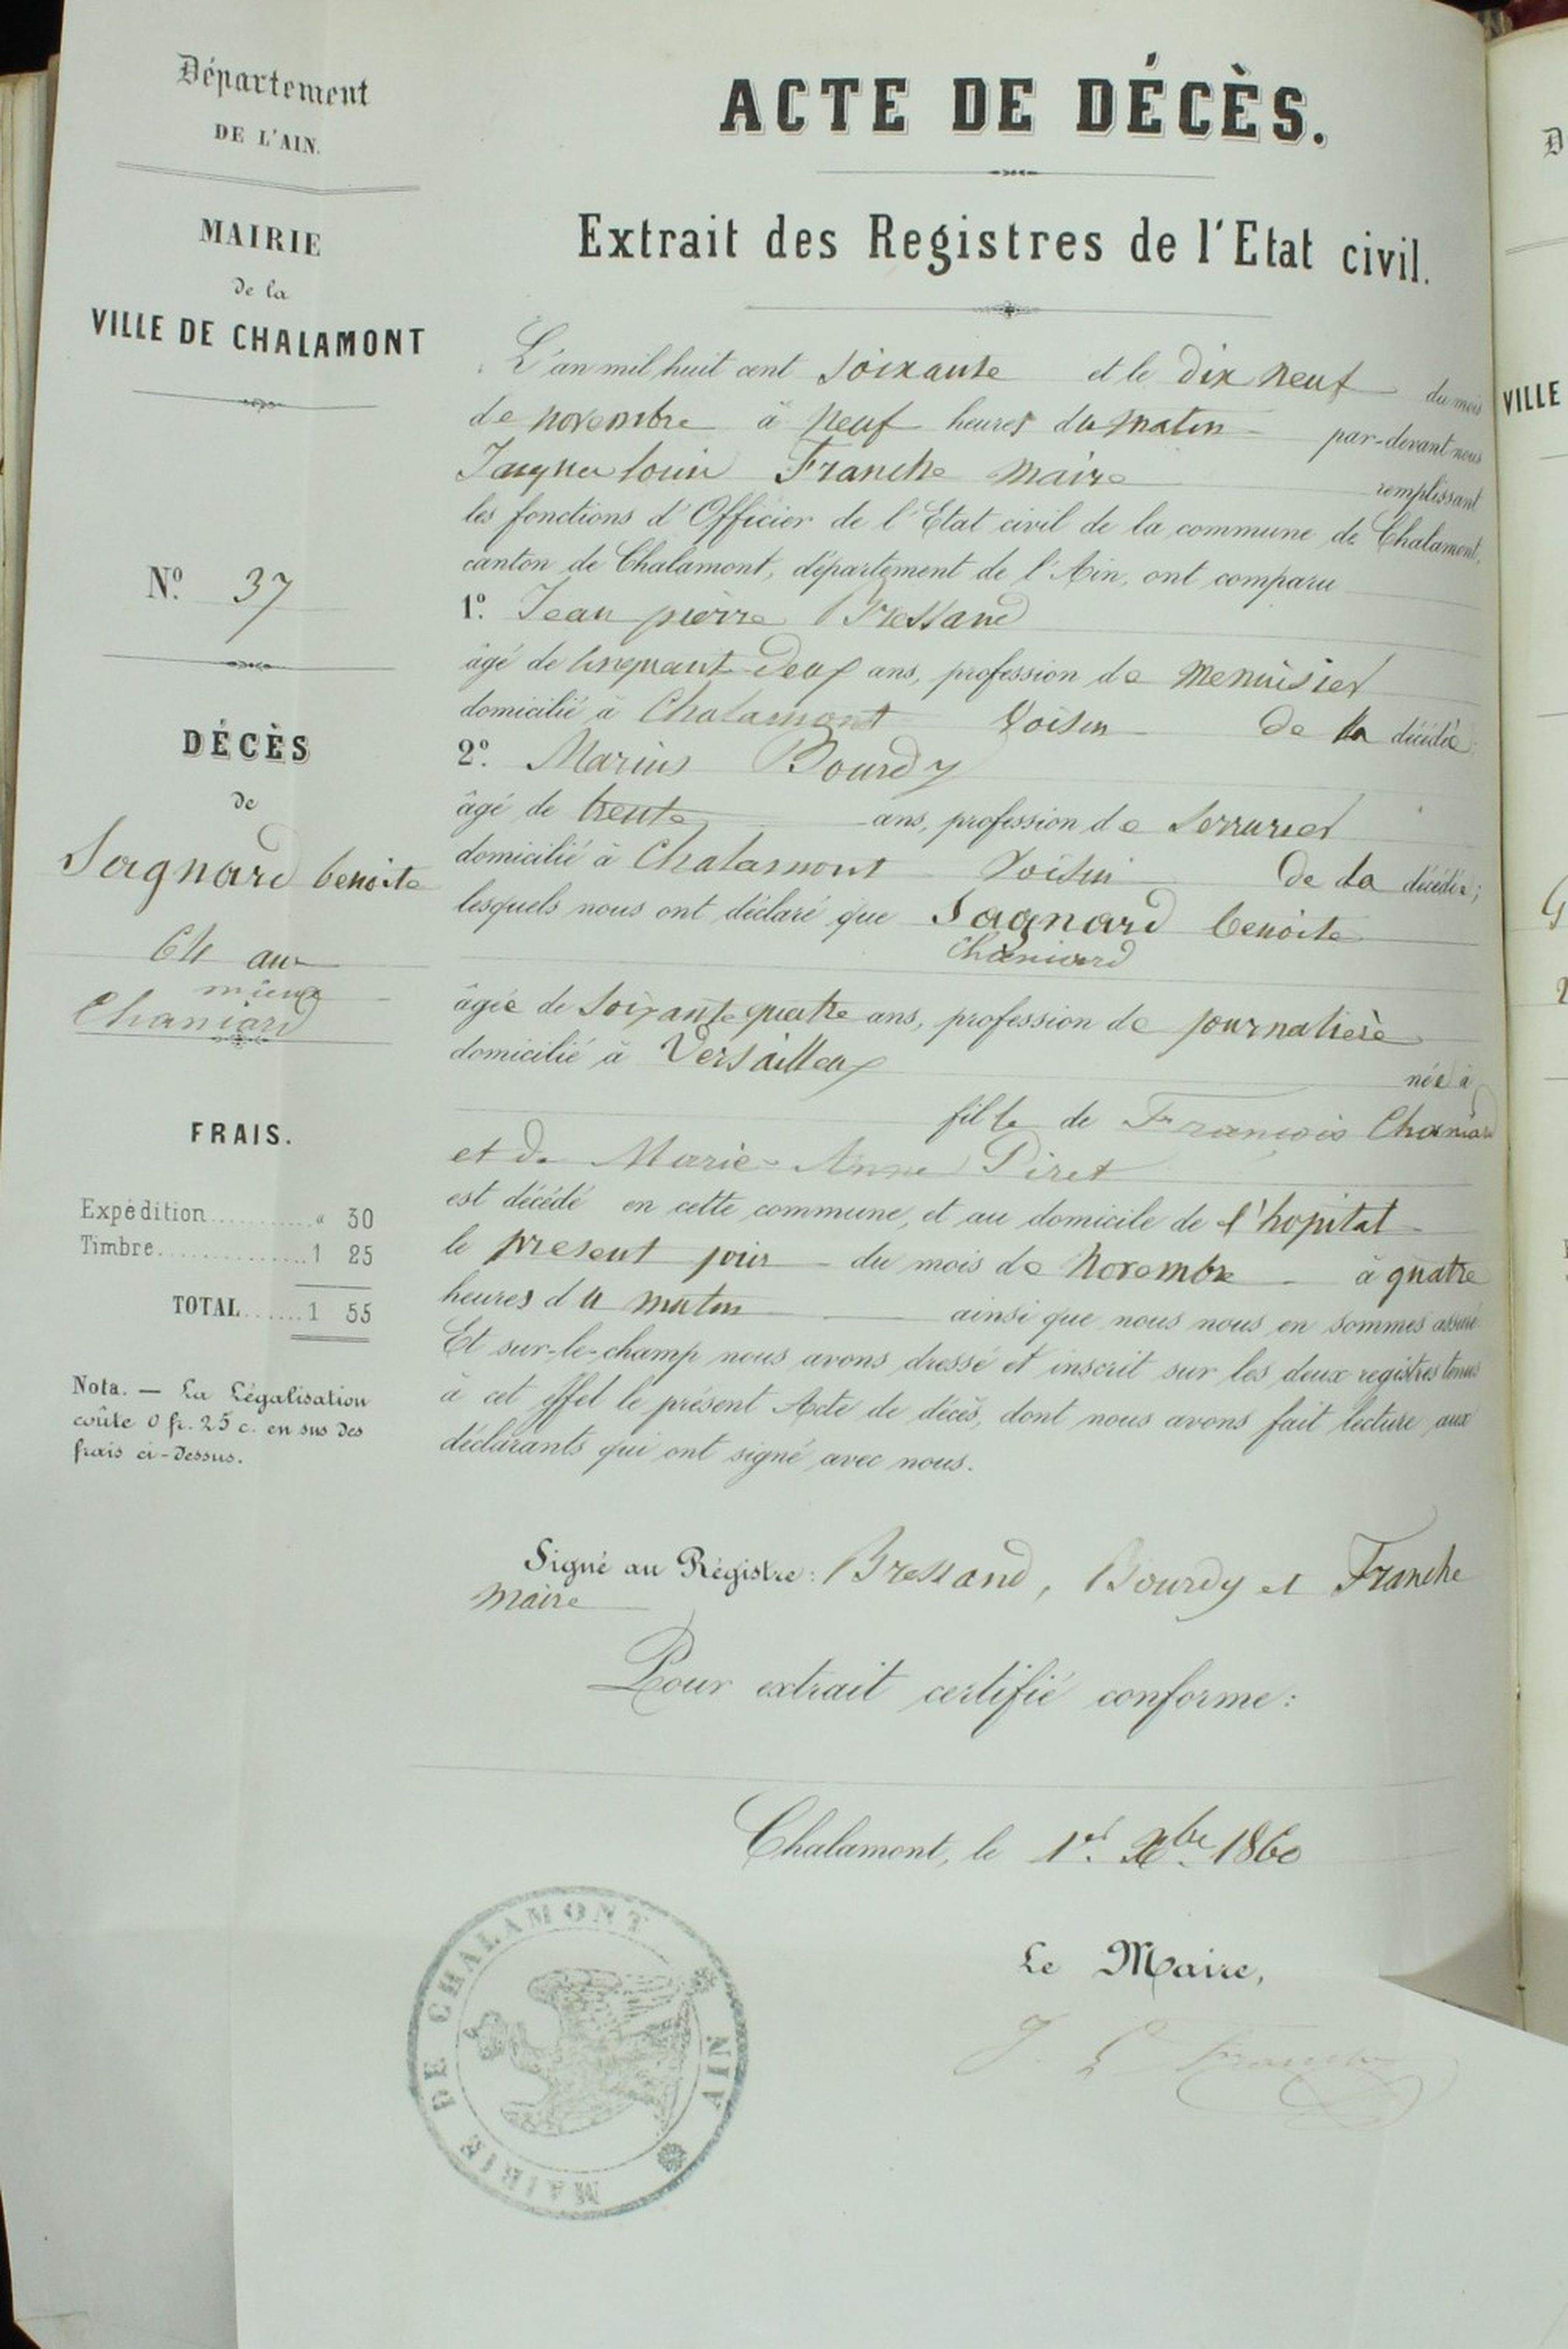 Département
DE L'AIN.
MAIRIE
de la
VILLE DE CHALAMONT
N.º 37
DÉCÈS
de
Sagnard benoite
64 ans
mieux
Chaniard
FRAIS.
Expédition........... « 30
Timbre............... 1 25
TOTAL...... 1 55
Nota. — La Légalisation
coûte 0 fr. 25 c. en sus des
frais ci-dessus.
ACTE DE DÉCÈS.
Extrait des Registres de l'Etat civil.
L'an mil huit cent soixante et le dix neuf du mois
de novembre à neuf heures du matin par-devant nous
Jacques louis Franche maire remplissant
les fonctions d'Officier de l'Etat civil de la commune de Chalamont,
canton de Chalamont, département de l'Ain, ont comparu
1º. Jean pierre Bressand
âgé de cinquant deux ans, profession de menuisier
domicilié à Chalamont voisin de la décédée
2º. Marius Bourdy
âgé de trente ans, profession de serrurier
domicilié à Chalamont voisin de la décédée;
lesquels nous ont déclaré que Sagnard benoite
Chaniard
âgée de soixante quatre ans, profession de journalière
domicilié à Versailleux née à
fille de François Chaniard
et de Marie-Anne Piret
est décédé en cette commune, et au domicile de l'hopital
le present jour du mois de Novembre à quatre
heures du matin ainsi que nous nous en sommes assuré
Et sur-le-champ nous avons dressé et inscrit sur les deux registres tenus
à cet effet le présent Acte de décès, dont nous avons fait lecture aux
déclarants qui ont signé avec nous.
Signé au Régistre: Bressand, Bourdy et Franche
maire
Pour extrait certifié conforme:
Chalamont, le 1er. Xbre. 1860
Le Maire,
J. L Franche
MAIRIE DE CHALAMONT
AIN
D
VILLE